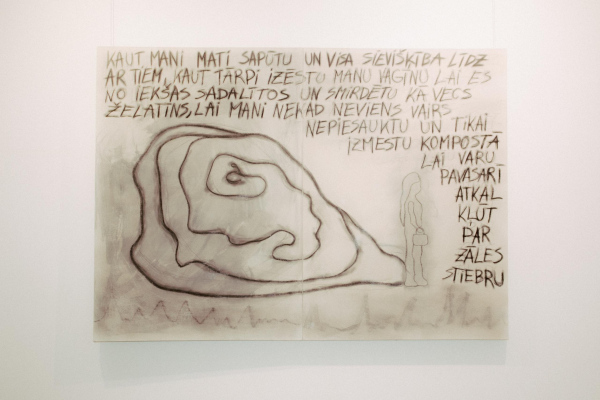 KAUT MANI MATI SAPŪTU UN VISA SIEVIŠĶĪBA LĪDZ
AR TIEM, KAUT TĀRPI IZĒSTU MANU VAGĪNU LAI ES
NO IEKŠAS SADALĪTOS UN SMIRDĒTU KĀ VECS
ŽELATĪNS, LAI MANI NEKAD NEVIENS VAIRS
NEPIESAUKTU UN TIKAI
IZMESTU KOMPOSTĀ
LAI VARU
PAVASARĪ
ATKAL
KĻŪT
PAR
ZĀLES
STIEBRU